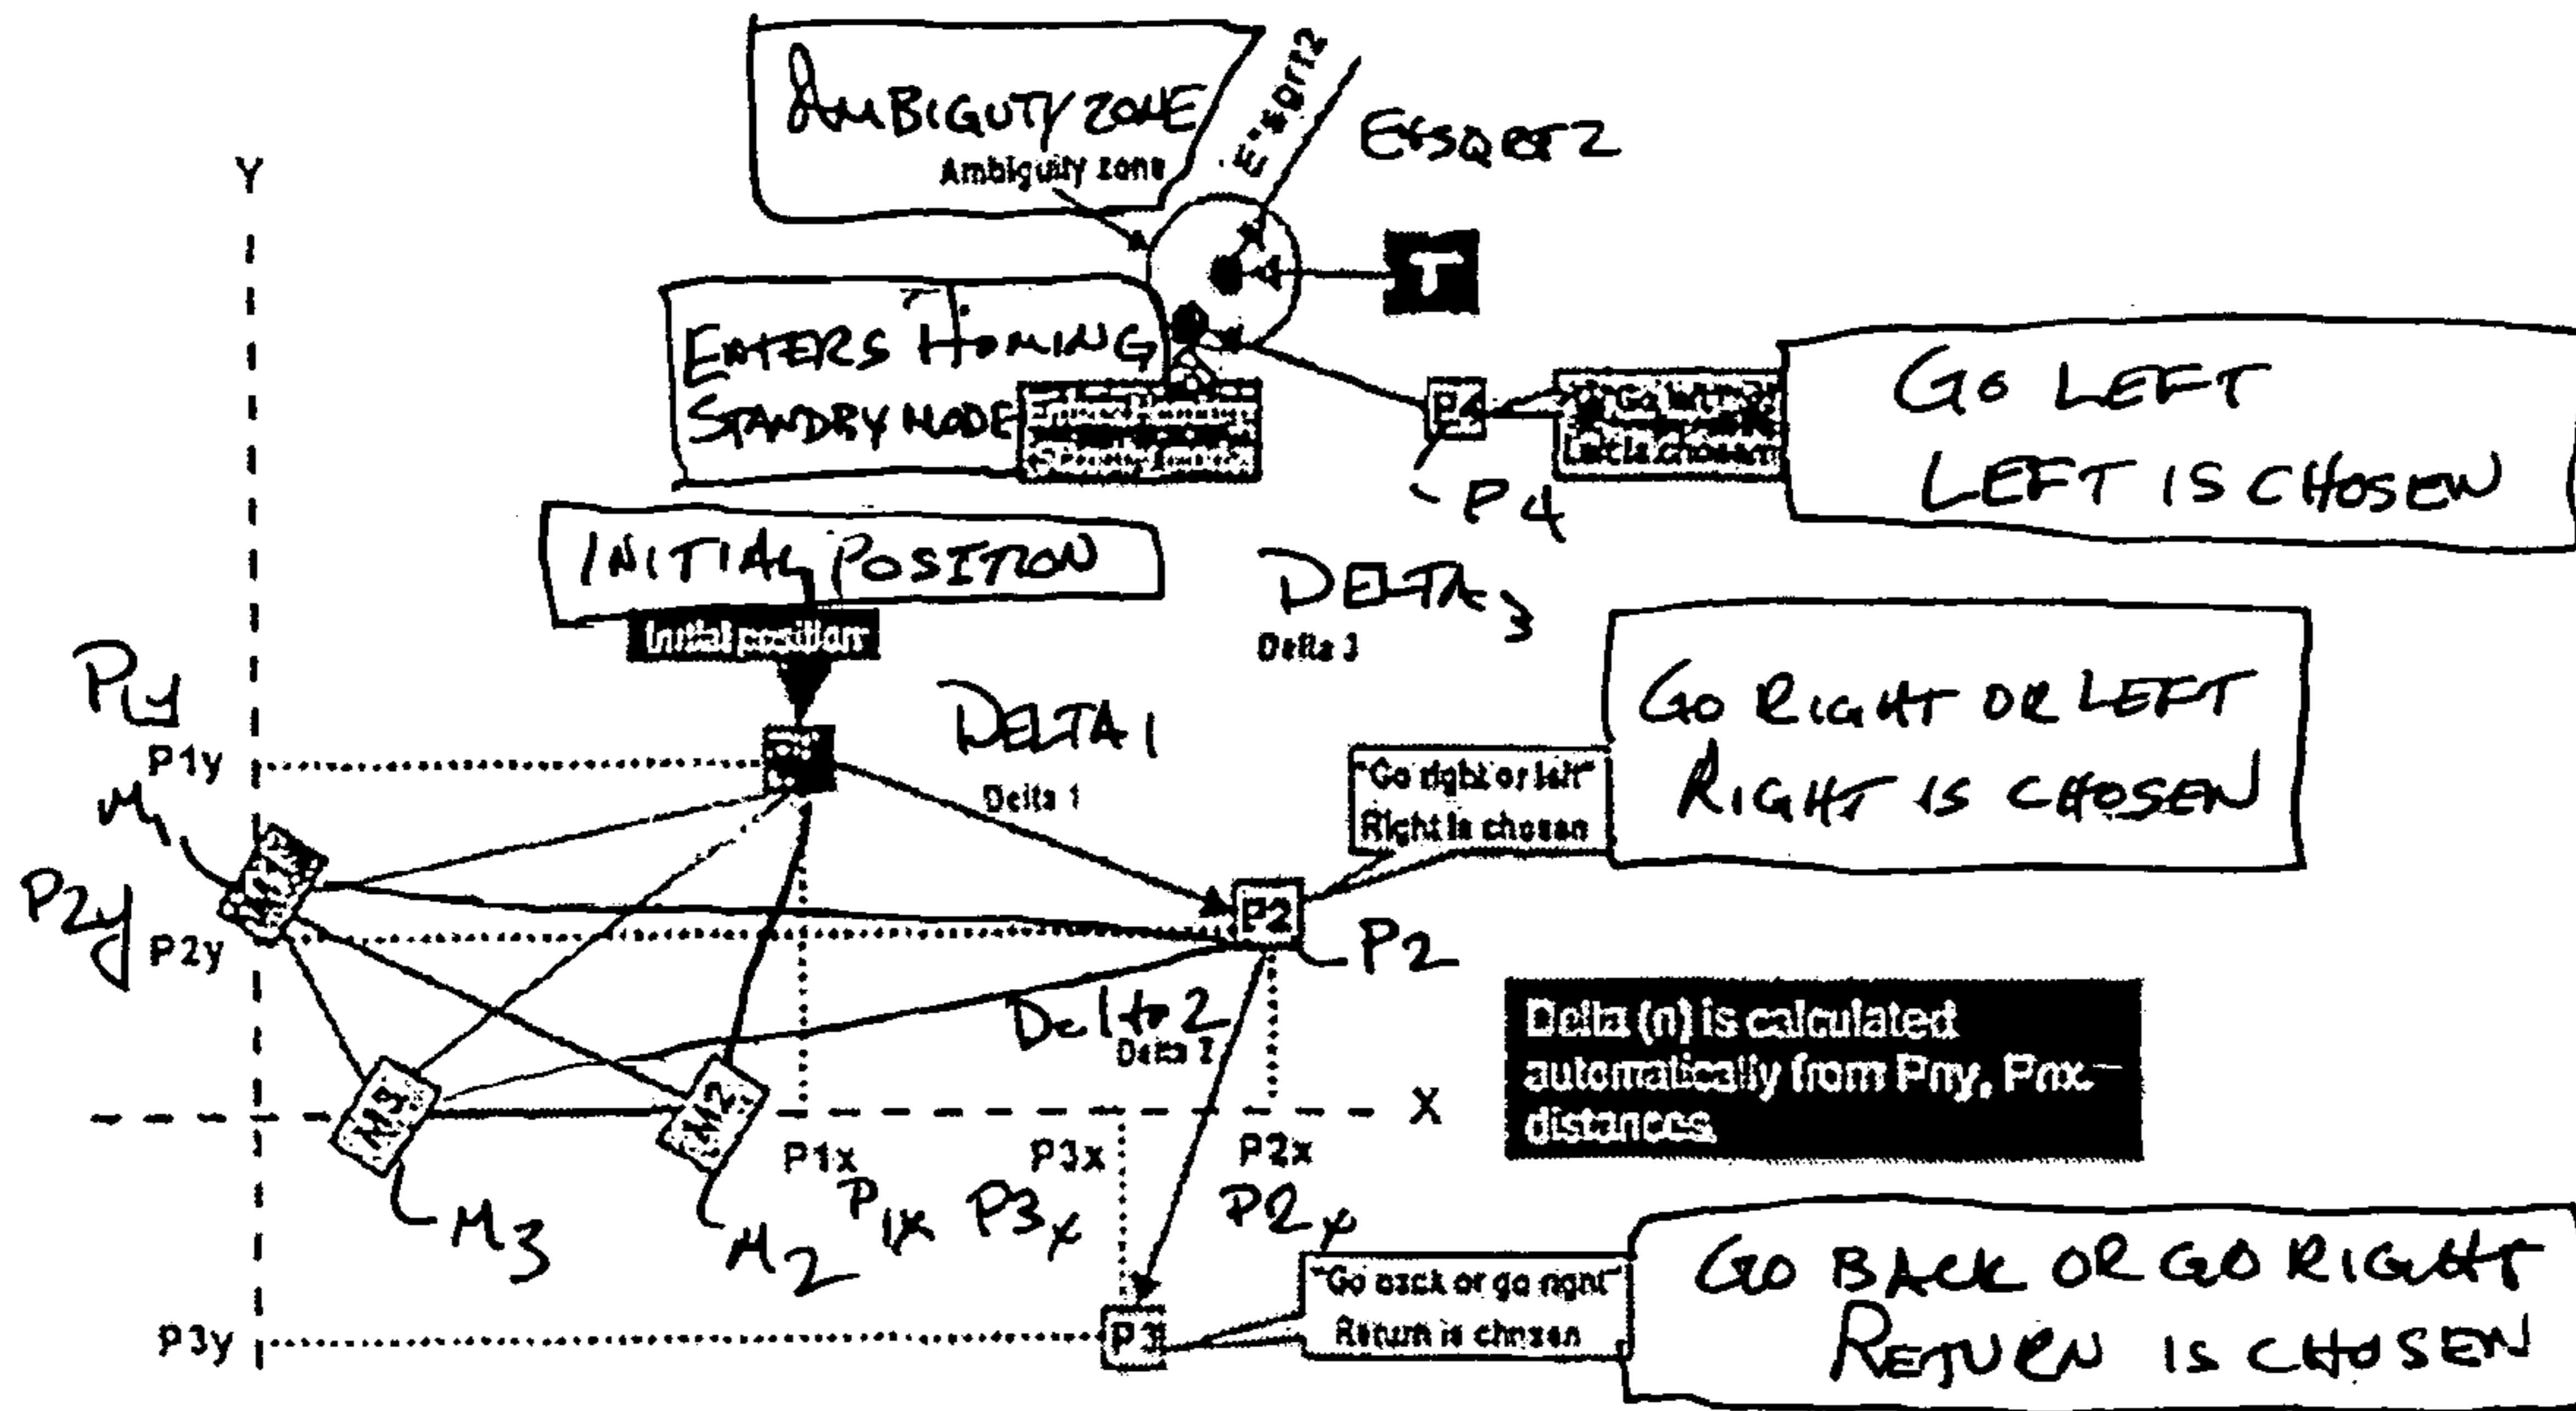 AMBIGUTY ZONE
Ambiguity zone
E*sqrt2
Y
T
ENTERS HOMING
STANDBY MODE
Enters Homing
Standby mode
P4
P4
Left is chosen
GO LEFT
LEFT IS CHOSEN
INITIAL POSITION
Initial position
DELTA 3
Delta 3
P1y
P1y
DELTA 1
Delta 1
"Go right or left"
Right is chosen
GO RIGHT OR LEFT
RIGHT IS CHOSEN
M1
M1
P2y
P2y
P2
P2
Delta 2
Delta (n) is calculated
automatically from Pny, Pnx-
distances
M3
M2
X
P1x
P3x
P2x
M3
M2
P1x
P3x
P2x
"Go back or go right"
Return is chosen
GO BACK OR GO RIGHT
RETURN IS CHOSEN
P3y
P3